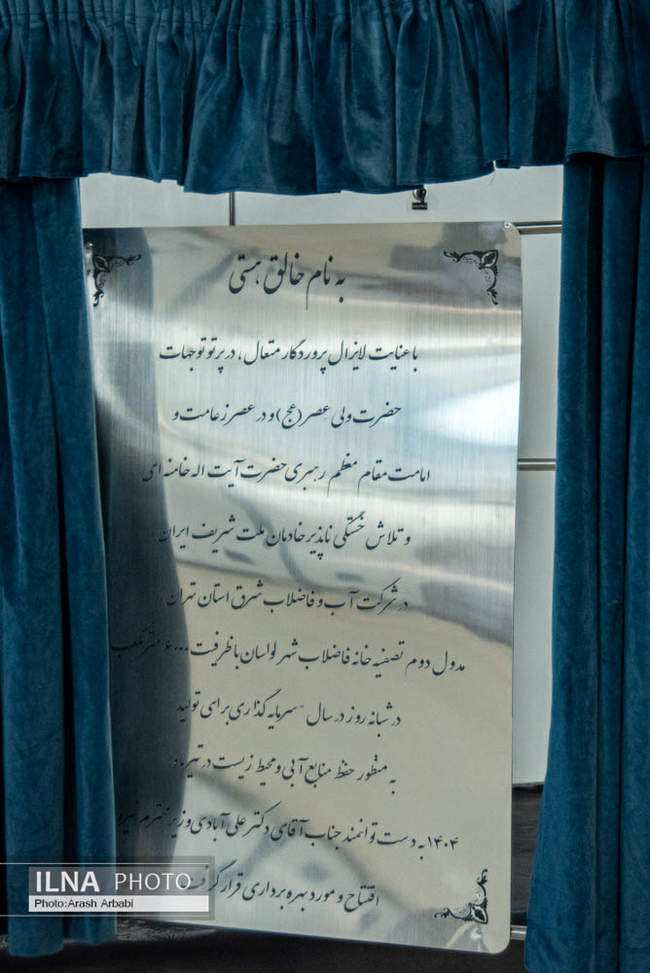 به نام خالق هستی
با عنایت لایزال پروردگار متعال، در پرتو توجهات
حضرت ولی عصر (عج) و در عصر زعامت و
امامت مقام معظم رهبری حضرت آیت اله خامنه ای
و تلاش خستگی ناپذیر خادمان ملت شریف ایران
در شرکت آب و فاضلاب شرق استان تهران
مدول دوم تصفیه خانه فاضلاب شهر لواسان با ظرفیت ۶۰۰۰ مترمکعب
در شبانه روز در سال "سرمایه گذاری برای تولید
به منظور حفظ منابع آبی و محیط زیست در تیرماه
۱۴۰۴ به دست توانمند جناب آقای دکتر علی آبادی وزیر محترم نیرو
افتتاح و مورد بهره برداری قرار گرفت
ILNA PHOTO
Photo:Arash Arbabi